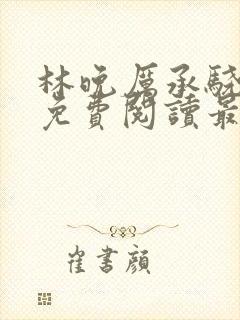 林晚厲承駿
免費閱讀最
崔書顏